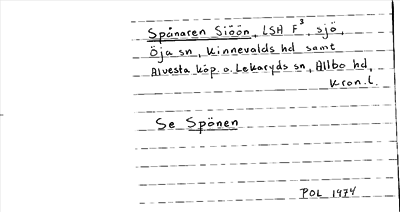 Spånaren Siöön, LSH F³, sjö,
Öja sn, Kinnevalds hd samt
Alvesta köp. o. Lekaryds sn, Allbo hd,
Kron.l.
Se Spönen
POL 1974